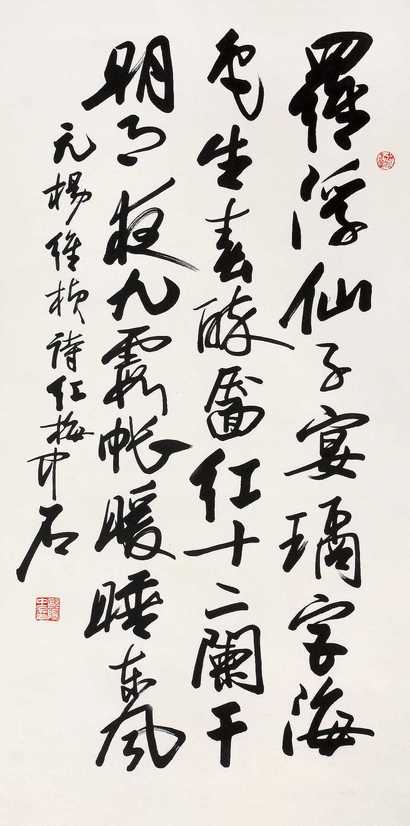 羅浮仙子宴璚宫海
色生春醉靨紅十二闌干
明月夜九霞帳暖睡東風
元楊維楨詩紅梅中石